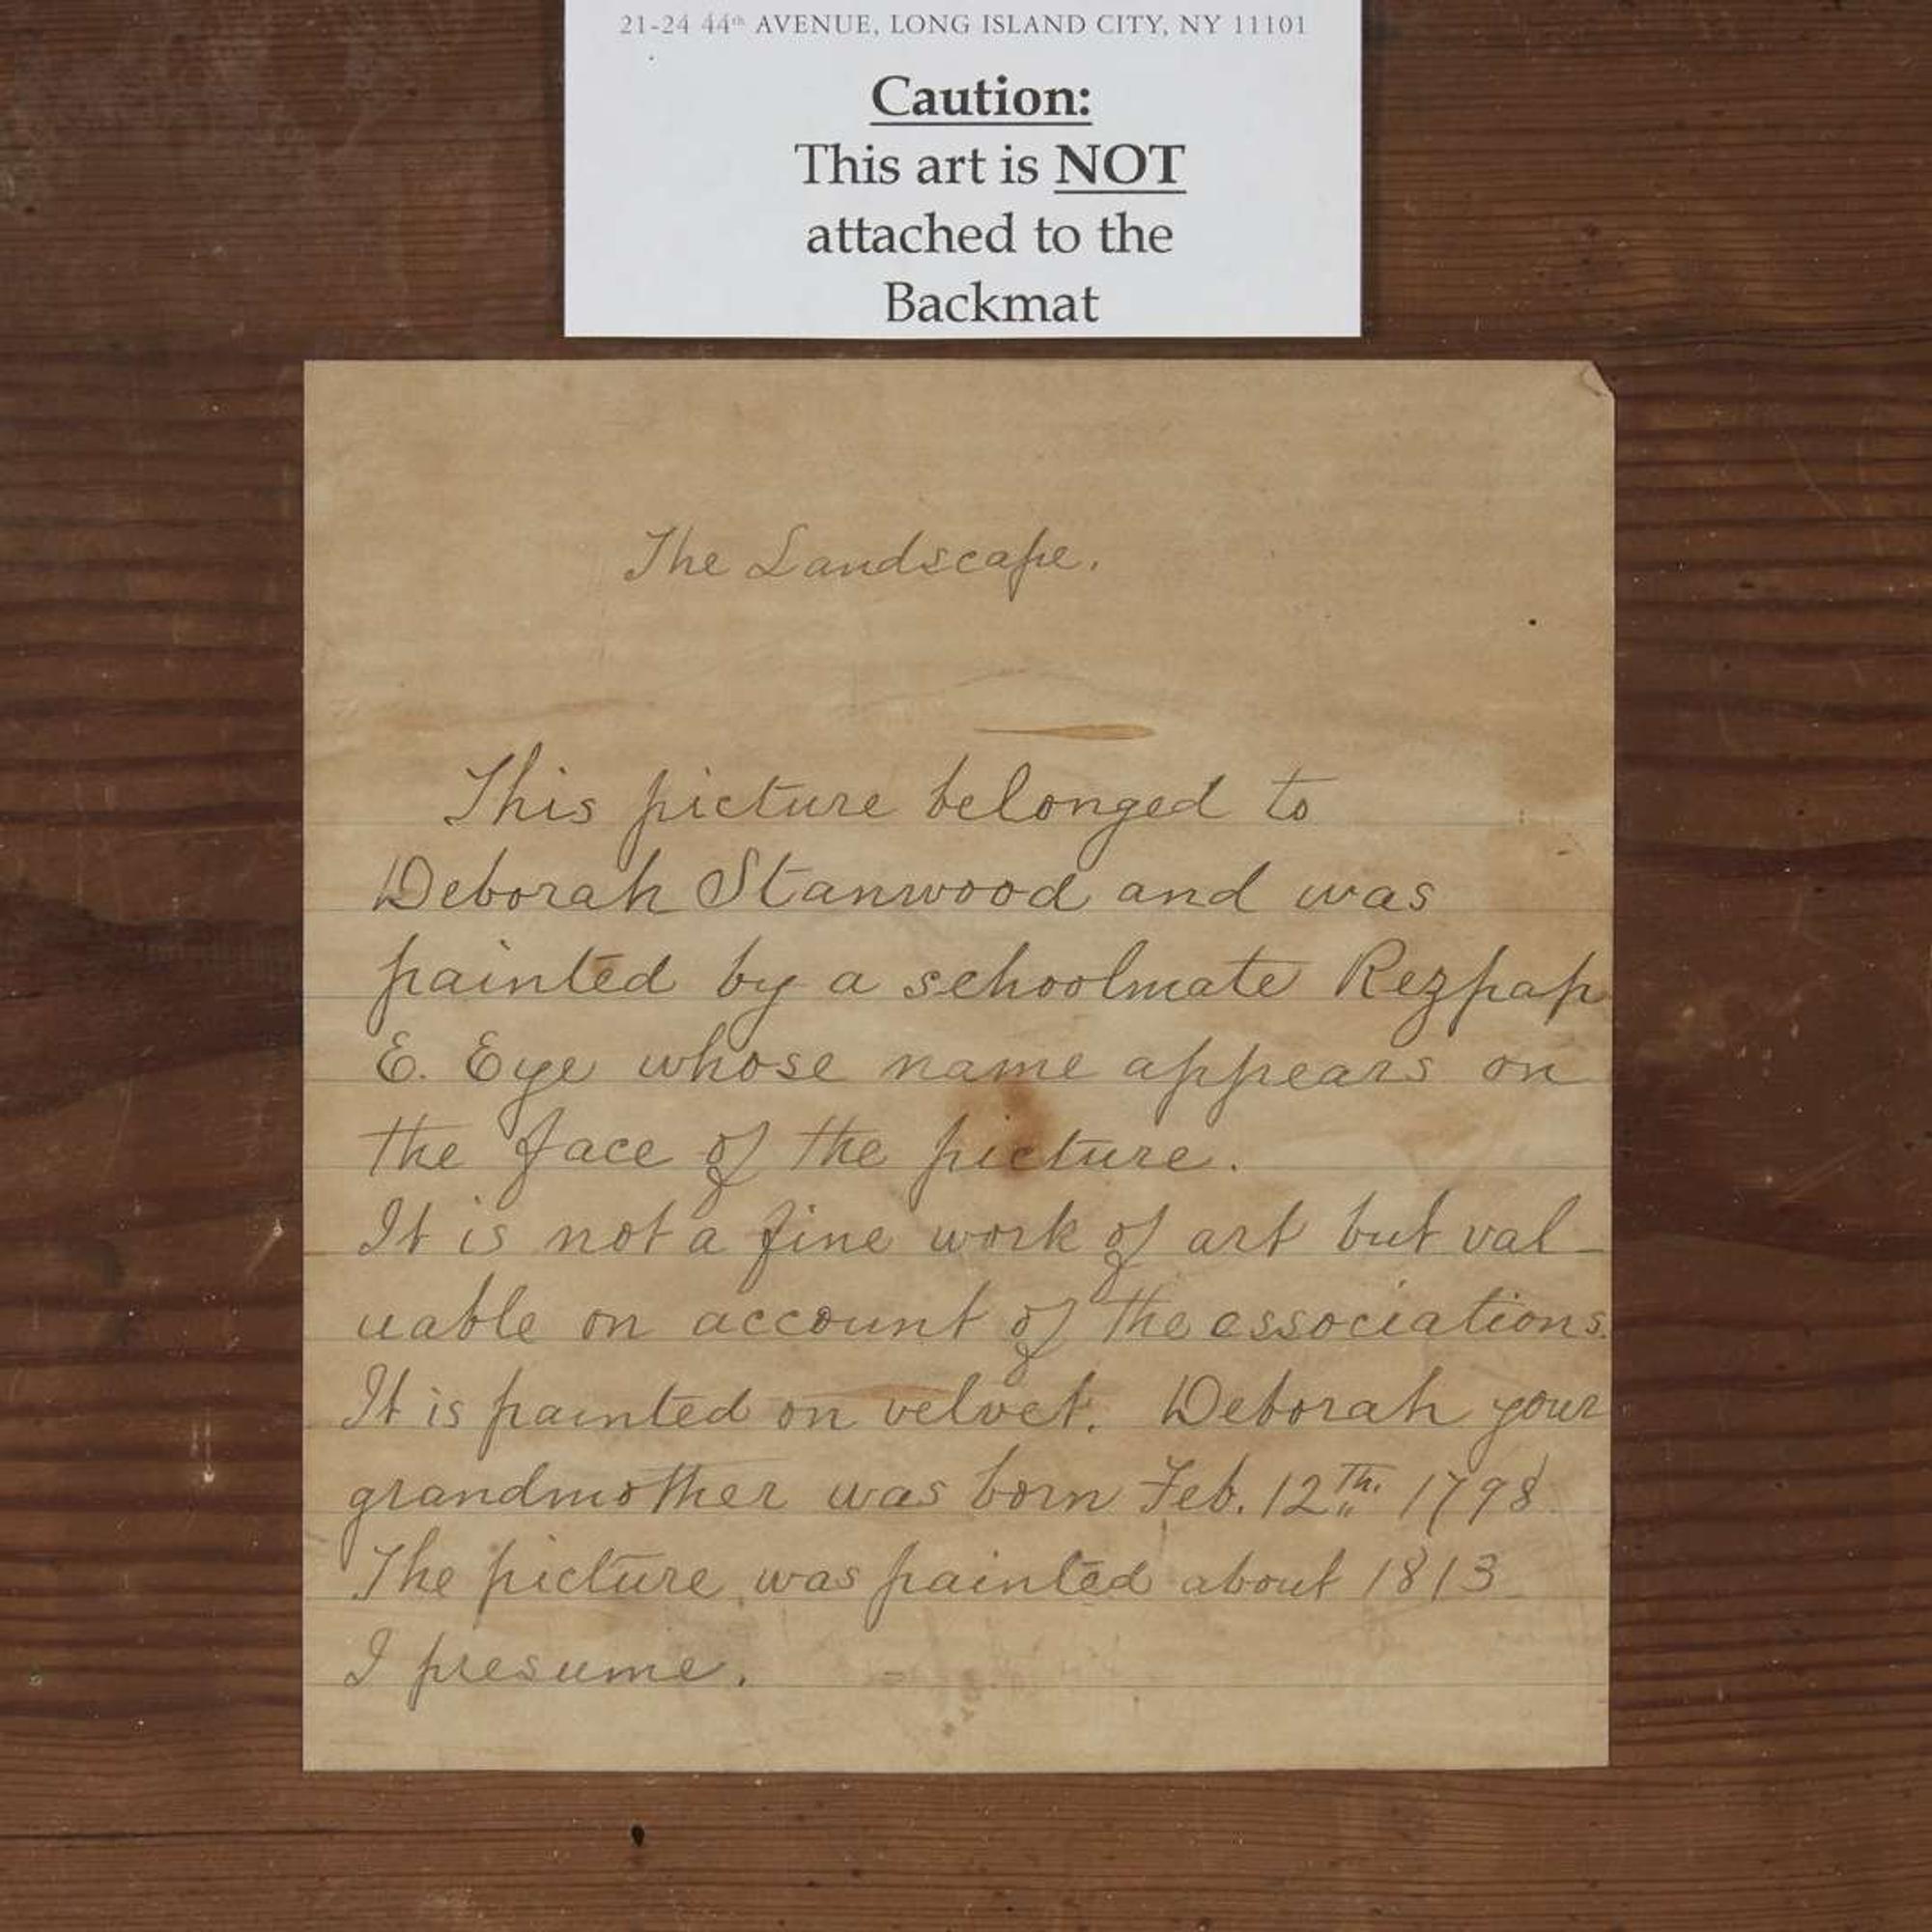 21-24 44th AVENUE, LONG ISLAND CITY, NY 11101
Caution:
This art is NOT
attached to the
Backmat
The Landscape.
This picture belonged to
Deborah Stanwood and was
painted by a schoolmate Rezpap
E. Eye whose name appears on
the face of the picture.
It is not a fine work of art but val-
uable on account of the essociations.
It is painted on velvet. Deborah your
grandmother was born Feb. 12th. 1798
The picture was painted about 1813
I presume.